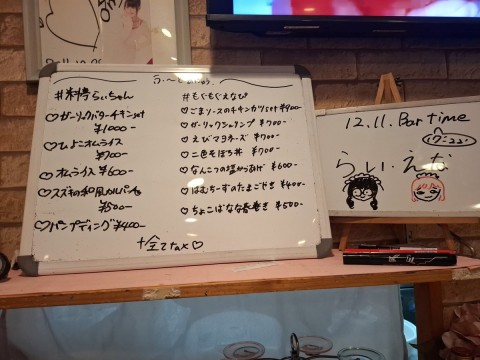 ふ〜どめにゅう
#料考らぃちゃん
♡ガーリックバターチキンset
¥1000-
♡ひよこオムライス
¥700-
♡オムライス ¥600-
♡スズキの和風カルパッチョ
¥500-
♡パンプディング ¥400-
#もぐもぐえなぴ
♡ごまソースのチキンカツset ¥900-
♡ガーリックシュリンプ ¥700-
♡えびマヨネーズ ¥700-
♡二色そぼろ丼 ¥700-
♡なんこつの塩からあげ ¥600-
♡はむちーずのたまごやき ¥400-
♡ちょこばなな春巻き ¥500-
+全てtax♡
12.11. Part time
らぃ.えな